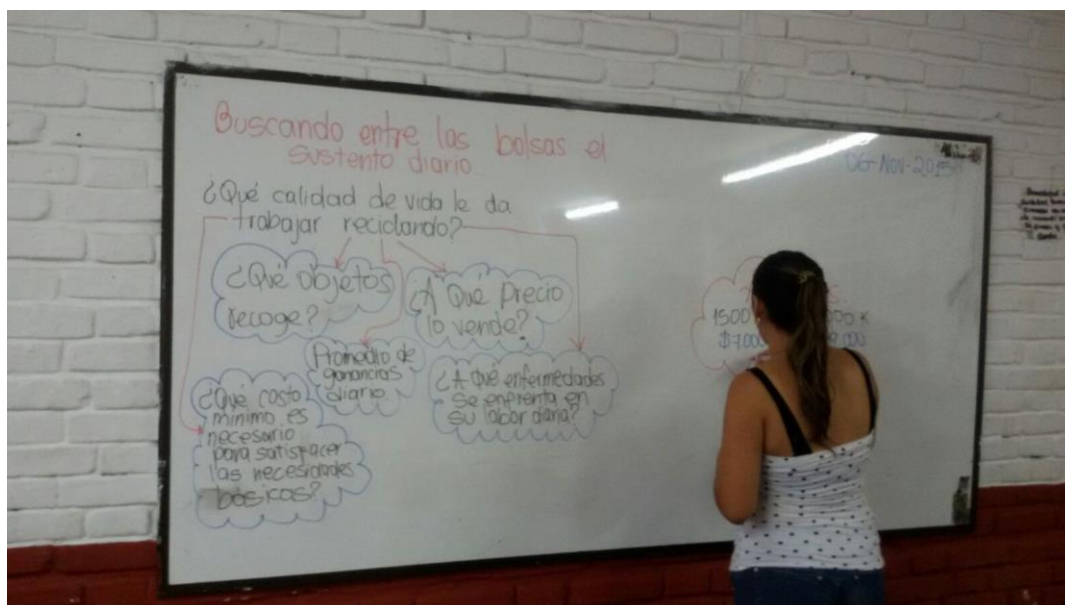 Buscando entre las bolsas el
sustento diario
06-Nov-2015
¿Qué calidad de vida le da
trabajar reciclando?
¿Qué objetos
recoge?
¿A Qué Precio
lo vende?
Promedio de
ganancias
diario
¿A qué enfermedades
se enfrenta en
su labor diaria?
¿Qué costo
mínimo es
necesario
para satisfacer
las necesidades
básicas?
1500
$7.000